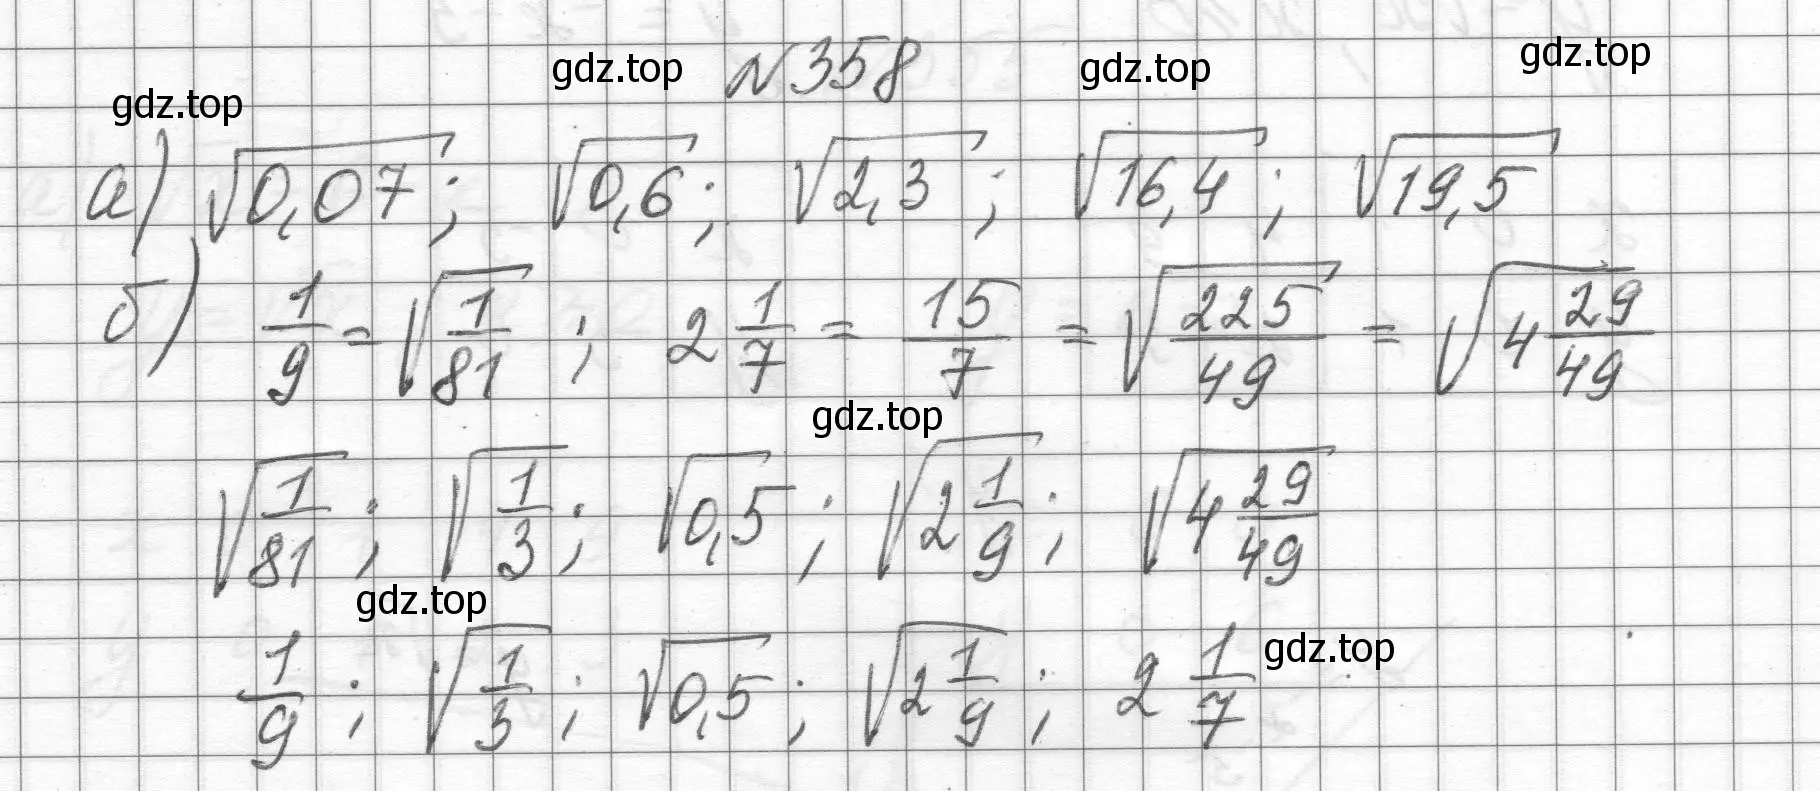 №358
gdz.top gdz.top gdz.top gdz.top
а) √0,07; √0,6; √2,3; √16,4; √19,5
б) 1/9 = √(1/81); 2 1/7 = 15/7 = √(225/49) = √(4 29/49)
gdz.top
√(1/81); √(1/3); √0,5; √(2 1/9); √(4 29/49)
gdz.top
1/9; √(1/3); √0,5; √(2 1/9); 2 1/7
gdz.top